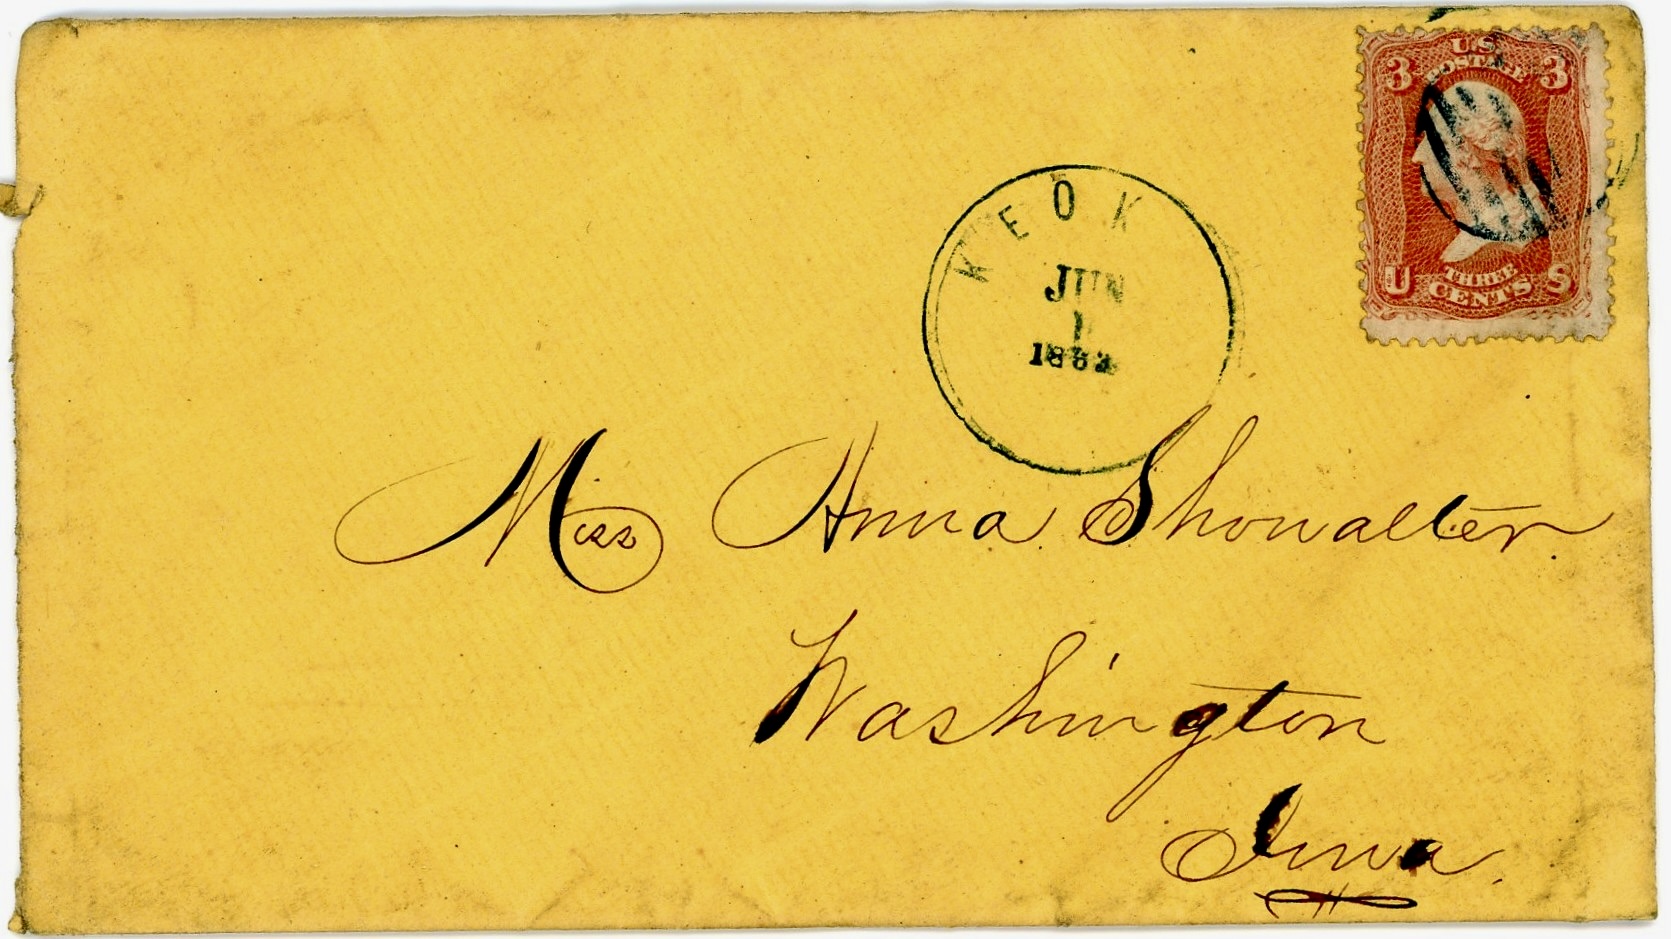 U.S.
POSTAGE
3 3
THREE
U CENTS S
KEOK
JUN
1
Miss Anna Showalter.
Washington
Iowa.